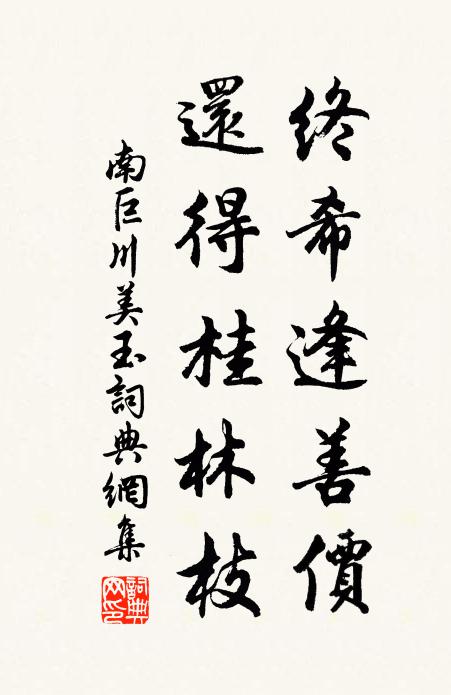 終希逢善價
還得桂林枝
南巨川美玉詞典網集
詞典网印